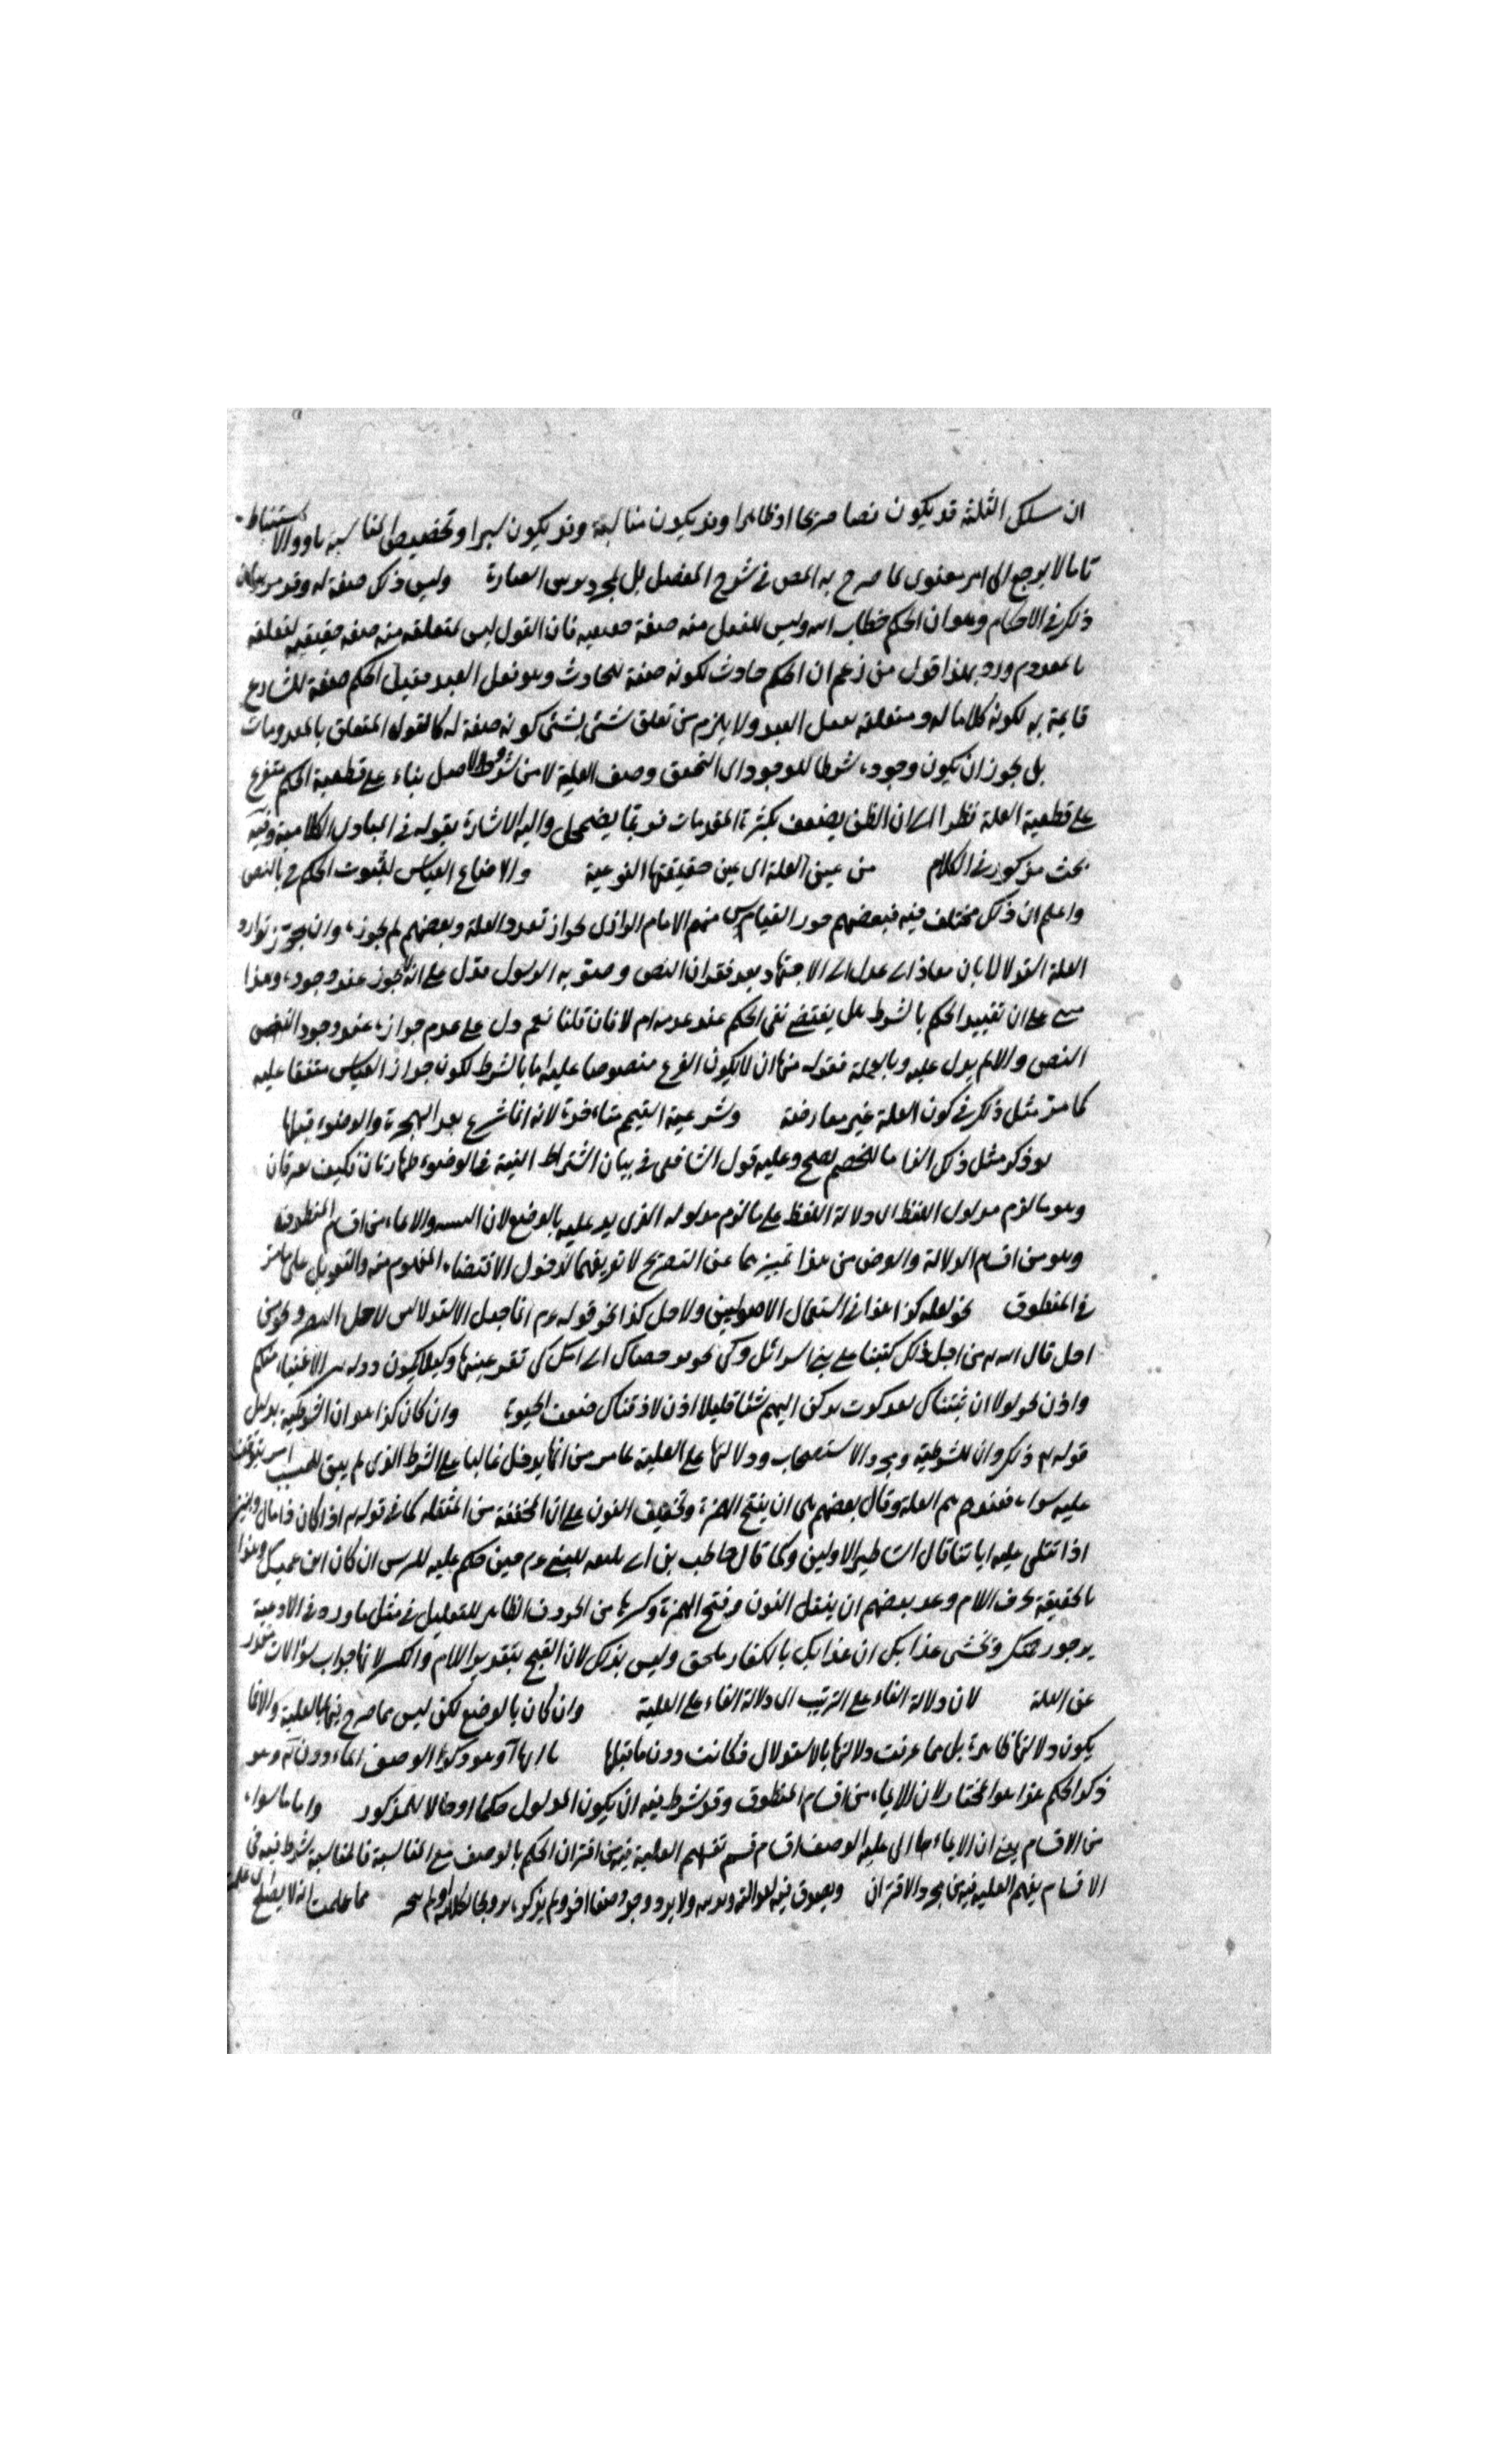 ان سلك الثلثة قد يكون نصا صريحا او ظاهرا وقد يكون مناسبة وقد يكون سبرا وتخصيص المناسبة بها والاستنباط
تا ما لا يرجع الى امر معنوى لما صرح به المص فى شرح المفصل بل لمجرد العبارة وليس ذلك صفة له وقد مر بيان
ذلك فى الاحكام وهو ان الحكم خطاب الله وليس للفعل منه صفة حقيقيه فان القول ليس لمتعلقه منه صفه حقيقيه لتعلقه
بالمعدوم ورد بهذا قول من زعم ان الحكم حادث لكونه صفة للحادث وهو فعل العبد فقيل الحكم صفة للشارع
قايمة به لكونه كلاما له ومتعلقه بفعل العبد ولا يلزم من تعلق شئ بشئ كونه صفة له كالقول المتعلق بالمعدومات
بل يجوز ان يكون وجوده شرطا للوجود اى التحقق وصف العلية لا من شروط الاصل بناء على قطعية الحكم يتفرع
على قطعية العلة نظرا الى ان الظن يضعف بكثرة المقدمات فربما يضمحل واليه الاشارة بقوله فى المبادى الكلامية وفيه
بحث مذكور فى الكلام من عين العلة اى عين حقيقتها النوعية والا ضاع القياس لثبوت الحكم ح بالنص
واعلم ان ذلك مختلف فيه فبعضهم جوز القياس منهم الامام الرازى لجواز تعدد العلة وبعضهم لم يجوزه وان جوز توارد
العلة استدلالا بان معاذا عدل الى الاجتهاد بعد فقدان النص وصوبه الرسول فدل على انه لا يجوز عند وجوده وهذا
على ان تقييد الحكم بالشرط هل يقتضى نفى الحكم عند عدمه ام لا فان قلنا نعم دل على عدم جوازه عند وجود النص
النص والا لم يدل عليه وبالجملة فقوله منها ان لا يكون الفرع منصوصا عليه بالشرط لكون جواز القياس متفقا عليه
كما مر مثل ذلك فى كون العلة غير معارضة وشرعية التيمم متاخرة لانه انما شرع بعد الهجرة والوضوء قبلها
لو ذكر مثل ذلك الزاما للخصم يصلح وعليه قول الشافعى فى بيان اشتراط النية فى الوضوء طهارتان فكيف يفترقان
وهو ما لزم مدلول اللفظ اى دلالة اللفظ على ما لزم مدلوله الذى يدل عليه بالوضع لان التنبيه والايماء من اقسام المنطوق
وهو من اقسام الدلالة والغرض من هذا تمييزهما عن التصريح لا تعريفهما لدخول الاقتضاء المفهوم منه والتعويل على ما مر
فى المنطوق نحو لعلة كذا هذا فى استعمال الاصوليين ولاجل كذا نحو قوله ءم انما جعل الاستيذان لاجل البصر ونحو من
اجل قال الله من اجل ذلك كتبنا على بنى اسرائل وكى نحو فرجعناك الى امك كى تقر عينها وكيلا يكون دولة بين الاغنياء منكم
واذن نحو لولا ان ثبتناك لقد كدت تركن اليهم شئا قليلا اذن لاذقناك ضعف الحيوة وان كان كذا هو ان الشرطية بدليل
قوله ذكر وان للشرطية ومجرد الاستصحاب ودلالتها على العلية لما مر من انها يدخل غالبا على الشرط الذى لم يبق للمسبب امر يتوقف
عليه سواه فيفهم العلة وقال بعضهم هى ان بفتح الهمزة وتخفيف النون على ان المخففة من المثقله كما فى قوله ان كان ذا مال وبنين
اذا تتلى عليه اياتنا قال اساطير الاولين وكما قال حاطب بن ابى بلتعه للنبى ءم حين حكم عليه للزبير ان كان ابن عمتك وهذا
بالحقيقة بحرف اللام وعد بعضهم ان بثقل النون وفتح الهمزة وكسرها من الحروف الظاهر للتعليل فى مثل ما ورد فى الادعية
نرجو رحمتك ونخشى عذابك ان عذابك بالكفار ملحق وليس بذلك لان الفتح بتقدير اللام والكسر لانها جواب سؤالات مقدر
عن العلة لان دلالة الفاء على الترتيب اى دلالة الفاء على العلية وان كان بالوضع لكن ليس مما صرح فيها بالعلية والا لما
يكون دلالتها ظاهرة بل مما عرفت دلالتها بالاستدلال فكانت دون ما قبلها وهو ذكر الوصف ايماء دون آه وهو
ذكر الحكم هذا هو المختار لان الايماء من اقسام المنطوق وقد شرط فيه ان يكون المدلول حكما او حالا للمذكور واما ما سواه
من الاقسام يعنى ان الايماء الى علية الوصف اقسام قسم تفهم العلية فيه من اقتران الحكم بالوصف مع المناسبة فالمناسبة شرط فيه فى
الاقسام يفهم العليه فيه من مجرد الاقتران ويصدق فيه ولا يرد وجود وصف اخر ولم يذكره مما علمت انه لا يصلح